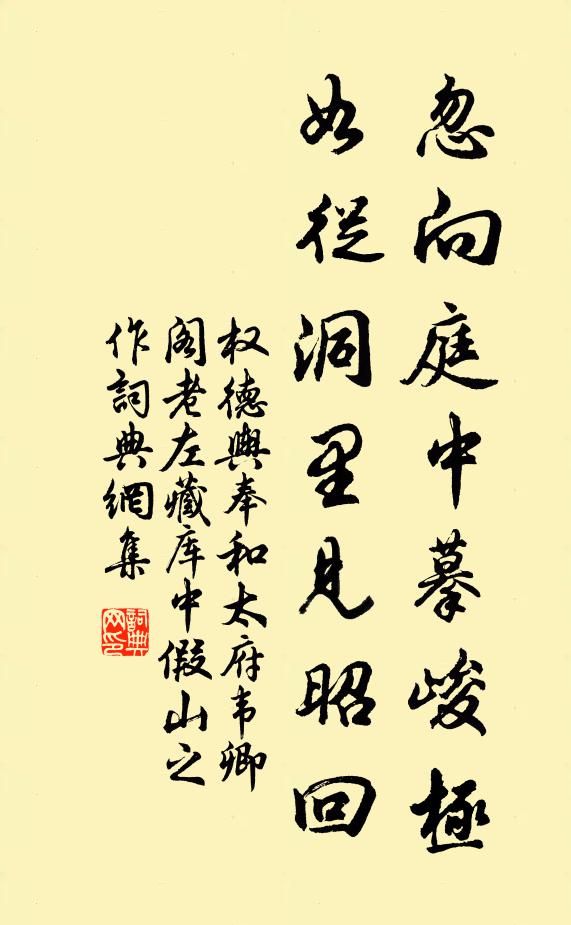 忽向庭中摹峻極
如從洞里見昭回
权德輿奉和太府韦卿
阁老左藏库中假山之
作詞典網集
詞典網印